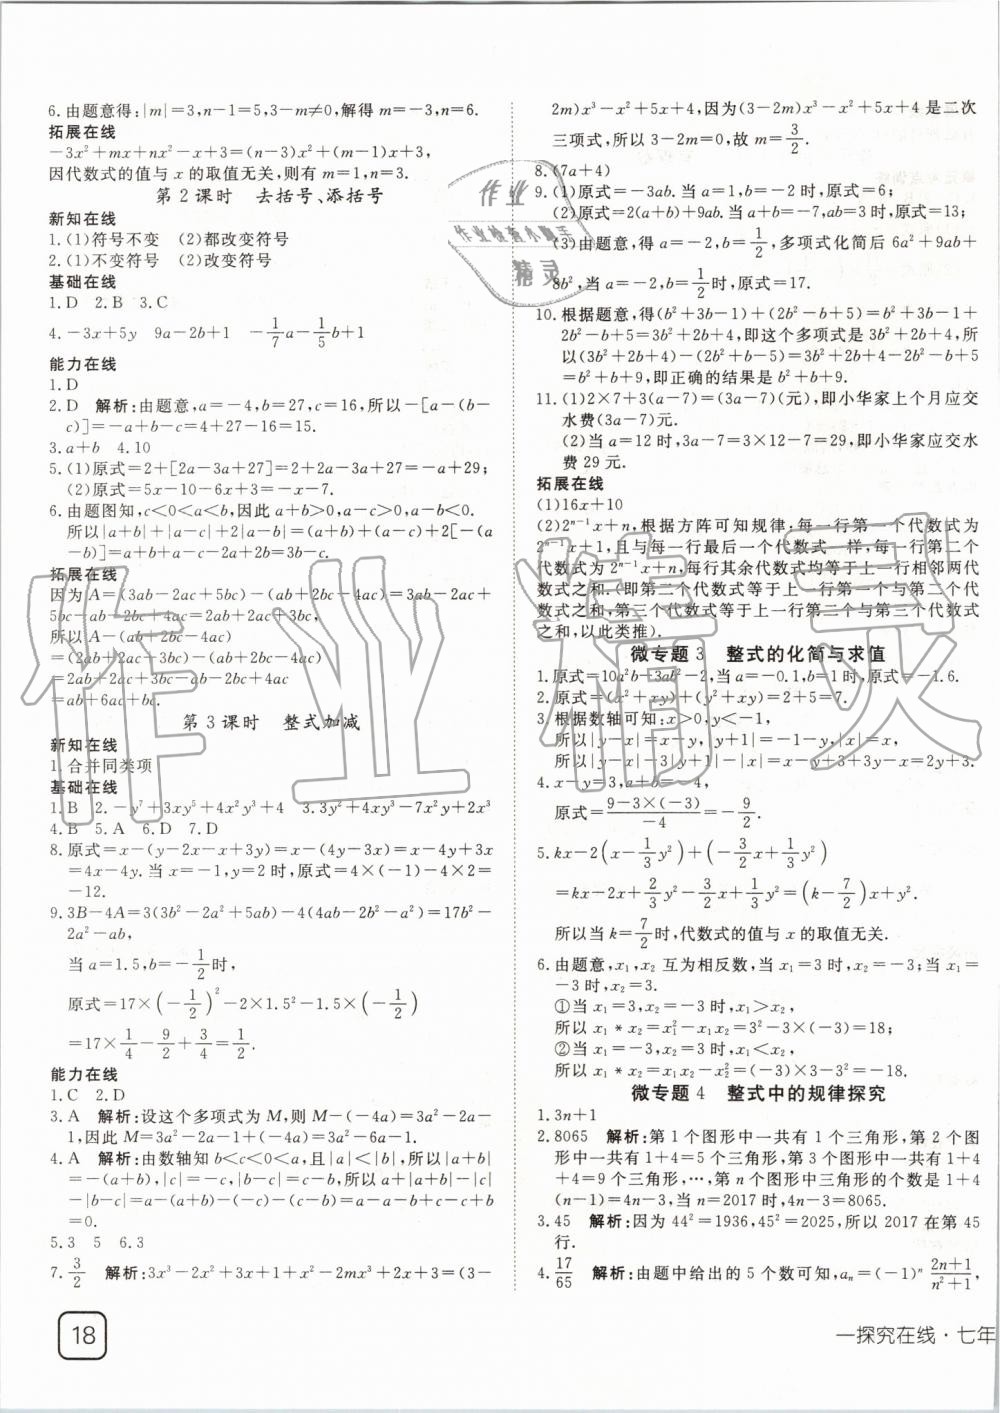 6.由题意得:|m|=3,n-1=5,3-m≠0,解得 m=-3,n=6.
拓展在线
-3x²+mx+nx²-x+3=(n-3)x²+(m-1)x+3,
因代数式的值与 x 的取值无关,则有 m=1,n=3.
第 2 课时 去括号、添括号
新知在线
1.(1)符号不变 (2)都改变符号
2.(1)不变符号 (2)改变符号
基础在线
1.D 2.B 3.C
4.-3x+5y 9a-2b+1 -1/7a-1/5b+1
能力在线
1.D
2.D 解析:由题意,a=-4,b=27,c=16,所以-[a-(b-
c)]=-a+b-c=4+27-16=15.
3.a+b 4.10
5.(1)原式=2+[2a-3a+27]=2+2a-3a+27=-a+29;
(2)原式=5x-10-6x+3=-x-7.
6.由题图知,c<0<a<b,因此 a+b>0,a-c>0,a-b<0.
所以|a+b|+|a-c|+2|a-b|=(a+b)+(a-c)+2[-(a
-b)]=a+b+a-c-2a+2b=3b-c.
拓展在线
因为 A=(3ab-2ac+5bc)-(ab+2bc-4ac)=3ab-2ac+
5bc-ab-2bc+4ac=2ab+2ac+3bc,
所以 A-(ab+2bc-4ac)
=(2ab+2ac+3bc)-(ab+2bc-4ac)
=2ab+2ac+3bc-ab-2bc+4ac
=ab+6ac+bc.
第 3 课时 整式加减
新知在线
1.合并同类项
基础在线
1.B 2.-y⁷+3xy⁵+4xy³+4 3.3y²+4xy³-7x²y+2x³
4.B 5.A 6.D 7.D
8.原式=x-(y-2x-x-3y)=x-(4y-3x)=x-4y+3x
=4x-4y.当 x=-1,y=2 时,原式=4×(-1)-4×2=
-12.
9.3B-4A=3(3b²-2a²+5ab)-4(4ab-2b²-a²)=17b²-
2a²-ab,
当 a=1.5,b=-1/2时,
原式=17×(-1/2)²-2×1.5²-1.5×(-1/2)
=17×1/4-9/2+3/4=1/2.
能力在线
1.C 2.D
3.A 解析:设这个多项式为 M,则 M-(-4a)=3a²-2a-
1,因此 M=3a²-2a-1+(-4a)=3a²-6a-1.
4.A 解析:由数轴知 b<c<0<a,且|a|<|b|,所以|a+b|
=-(a+b),|c|=-c,|b-c|=c-b,所以|a+b|-|c|
-|b-c|=a-(a+b)-(-c)-(c-b)=a-a-b+c-c+b
=0.
5.3 5 6.3
7.3/2 解析:3x³-2x²+3x+1+x²-2mx³+2x+3=(3-
2m)x³-x²+5x+4,因为(3-2m)x³-x²+5x+4 是二次
三项式,所以 3-2m=0,故 m=3/2.
8.(7a+4)
9.(1)原式=-3ab.当 a=1,b=-2 时,原式=6;
(2)原式=2(a+b)+9ab.当 a+b=-7,ab=3 时,原式=13;
(3)由题意,得 a=-2,b=1/2,多项式化简后 6a²+9ab+
8b²,当 a=-2,b=1/2时,原式=17.
10.根据题意,得(b²+3b-1)+(2b²-b+5)=b²+3b-1+
2b²-b+5=3b²+2b+4,即这个多项式是 3b²+2b+4,所
以(3b²+2b+4)-(2b²+b-5)=3b²+2b+4-2b²-b+5
=b²+b+9,即正确的结果是 b²+b+9.
11.(1)2×7+3(a-7)=(3a-7)(元),即小华家上个月应交
水费(3a-7)元.
(2)当 a=12 时,3a-7=3×12-7=29,即小华家应交水
费 29 元.
拓展在线
(1)16x+10
(2)2ⁿ⁻¹x+n,根据方阵可知规律:每一行第一个代数式为
2ⁿ⁻¹x+1,且与每一行最后一个代数式一样,每一行第二个
代数式为 2ⁿ⁻¹x+n,每行其余代数式均等于上一行相邻两代
数式之和.(即第二个代数式等于上一行第一个与第二个代
数式之和,第三个代数式等于上一行第二个与第三个代数式
之和,以此类推).
微专题 3 整式的化简与求值
1.原式=10a²b-3ab²-2,当 a=-0.1,b=1 时,原式=-1.6.
2.原式=(x²+xy)+(y²+xy)=2+5=7.
3.根据数轴可知:x>0,y<-1,
所以|y-x|=x-y,|y+1|=-1-y,
所以|y-x|-3|y+1|-|x|=x-y+3+3y-x=2y+3.
4.x-y=3,a+b=-4,
原式=9-3×(-3)/-4=-9/2.
5.kx-2(x-1/3y²)+(-3/2x+1/3y²)
=kx-2x+2/3y²-3/2x+1/3y²=(k-7/2)x+y².
所以当 k=7/2时,代数式的值与 x 的取值无关.
6.由题意,x₁,x₂ 互为相反数,当 x₁=3 时,x₂=-3;当 x₁
=-3 时,x₂=3.
①当 x₁=3,x₂=-3 时,x₁>x₂,
所以 x₁*x₂=x₁²-x₁x₂=3²-3×(-3)=18;
②当 x₁=-3,x₂=3 时,x₁<x₂,
所以 x₁*x₂=x₁x₂-x₂²=(-3)×3-3²=-18.
微专题 4 整式中的规律探究
1.3n+1
2.8065 解析:第 1 个图形中一共有 1 个三角形,第 2 个图
形中一共有 1+4=5 个三角形,第 3 个图形中一共有 1+4
+4=9 个三角形,…,第 n 个图形中三角形的个数是 1+4
(n-1)=4n-3,当 n=2017 时,4n-3=8065.
3.45 解析:因为 44²=1936,45²=2025,所以 2017 在第 45
行.
4.17/65 解析:由题中给出的 5 个数可知,aₙ=(-1)ⁿ 2n+1/n²+1,
18
一探究在线·七年
作业
作业检查小帮手
精灵
作业精灵